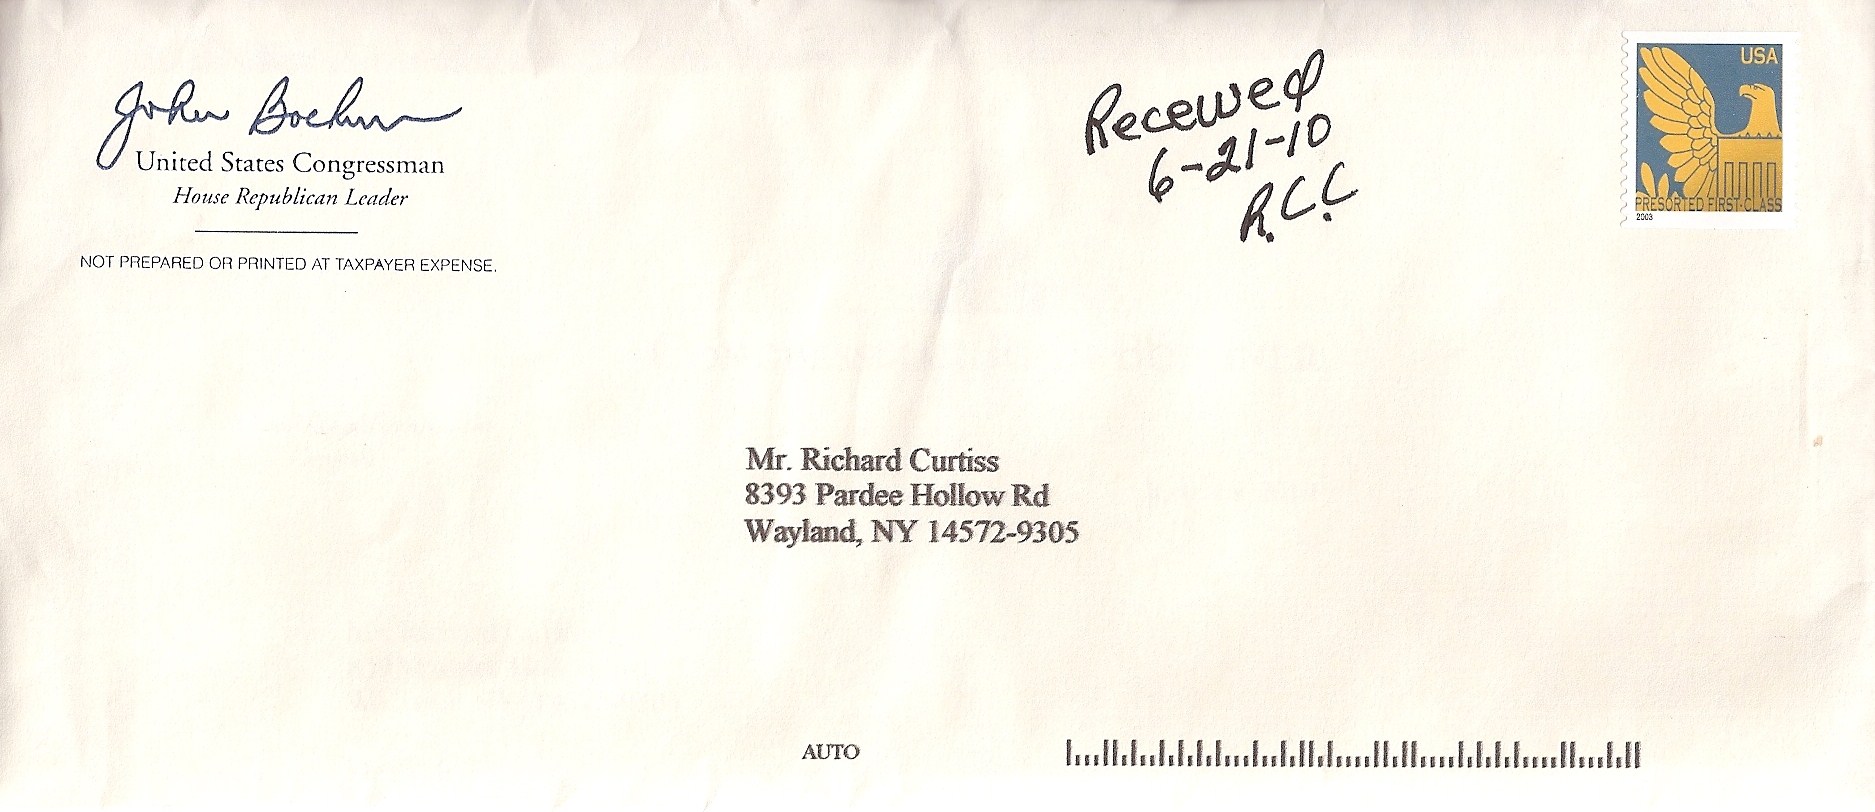 John Boehner
United States Congressman
House Republican Leader
NOT PREPARED OR PRINTED AT TAXPAYER EXPENSE.
Received
6-21-10
R.C.C
USA
PRESORTED FIRST-CLASS
2003
Mr. Richard Curtiss
8393 Pardee Hollow Rd
Wayland, NY 14572-9305
AUTO